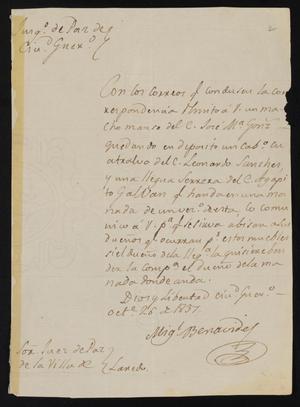 Juzgᵒ. de Paz de
Ciuᵈ. Guerᵒ.
2
Con los correos q̃ condusen la co
rrespondencia Rmito á V. un ma
cho manso del C. José Mᵃ Gonz
quedando en deposito un cabᵒ. cu
atralvo del C. Leonardo Sanches
y una llegua del C. Agapi
to Galvan q̃ handa en una ma
nada de un verᵒ. de esta lo comu
nico á V. pᵃ. q̃ se sirva abisar a los
dueños q̃ ocurran pʳ. estos muebles
si el dueño de la llegᵃ. la quisiere
el dueño de la ma
nada donde anda.
Dios y libertad Ciuᵈ. Guerᵒ.
octᵉ. 26 de 1837.
Migˡ. Benavides
Sor. Juez de Paz
de la Villa de Laredo.